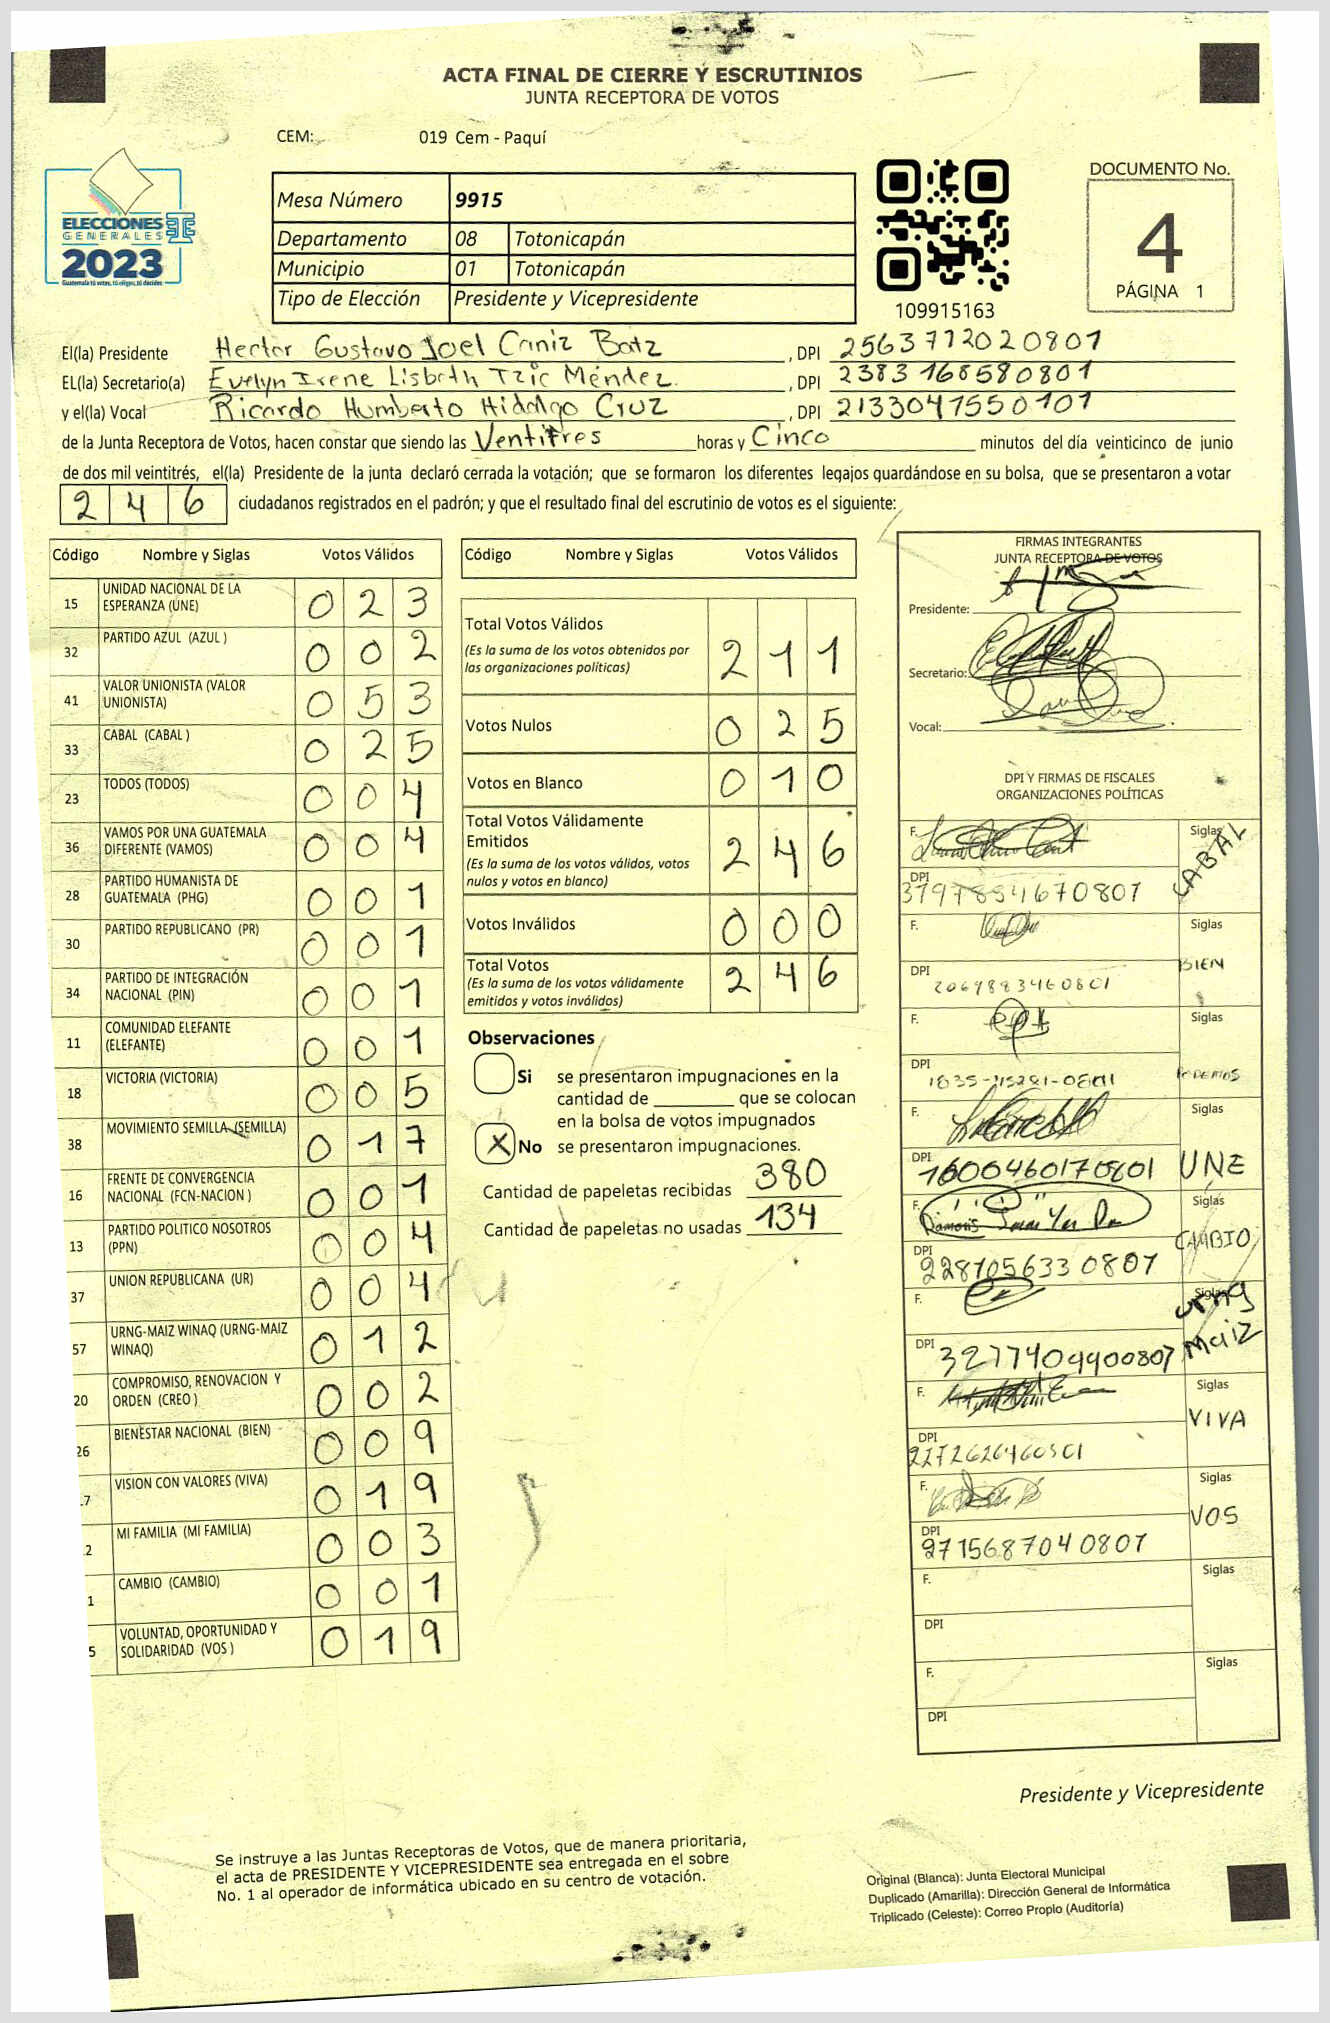 ACTA FINAL DE CIERRE Y ESCRUTINIOS
JUNTA RECEPTORA DE VOTOS
CEM: 019 Cem - Paquí
ELECCIONES
GENERALES
2023
Guatemala tú votas, tú eliges, tú decides
Mesa Número 9915
Departamento 08 Totonicapán
Municipio 01 Totonicapán
Tipo de Elección Presidente y Vicepresidente
109915163
DOCUMENTO No.
4
PÁGINA 1
El(la) Presidente Hector Gustavo Joel Caniz Batz, DPI 2563772020801
EL(la) Secretario(a) Evelyn Irene Lisbeth Tzic Méndez, DPI 2383168580801
y el(la) Vocal Ricardo Humberto Hidalgo Cruz, DPI 2133041550101
de la Junta Receptora de Votos, hacen constar que siendo las Ventitres horas y Cinco minutos del día veinticinco de junio
de dos mil veintitrés, el(la) Presidente de la junta declaró cerrada la votación; que se formaron los diferentes legajos guardándose en su bolsa, que se presentaron a votar
246 ciudadanos registrados en el padrón; y que el resultado final del escrutinio de votos es el siguiente:
Código Nombre y Siglas Votos Válidos
15 UNIDAD NACIONAL DE LA ESPERANZA (UNE) 023
32 PARTIDO AZUL (AZUL ) 002
41 VALOR UNIONISTA (VALOR UNIONISTA) 053
33 CABAL (CABAL ) 025
23 TODOS (TODOS) 004
36 VAMOS POR UNA GUATEMALA DIFERENTE (VAMOS) 004
28 PARTIDO HUMANISTA DE GUATEMALA (PHG) 001
30 PARTIDO REPUBLICANO (PR) 001
34 PARTIDO DE INTEGRACIÓN NACIONAL (PIN) 001
11 COMUNIDAD ELEFANTE (ELEFANTE) 001
18 VICTORIA (VICTORIA) 005
38 MOVIMIENTO SEMILLA (SEMILLA) 017
16 FRENTE DE CONVERGENCIA NACIONAL (FCN-NACION ) 001
13 PARTIDO POLITICO NOSOTROS (PPN) 004
37 UNION REPUBLICANA (UR) 004
57 URNG-MAIZ WINAQ (URNG-MAIZ WINAQ) 012
20 COMPROMISO, RENOVACION Y ORDEN (CREO ) 002
26 BIENESTAR NACIONAL (BIEN) 009
7 VISION CON VALORES (VIVA) 019
2 MI FAMILIA (MI FAMILIA) 003
1 CAMBIO (CAMBIO) 001
5 VOLUNTAD, OPORTUNIDAD Y SOLIDARIDAD (VOS ) 019
Código Nombre y Siglas Votos Válidos
Total Votos Válidos 211
(Es la suma de los votos obtenidos por
las organizaciones políticas)
Votos Nulos 025
Votos en Blanco 010
Total Votos Válidamente
Emitidos 246
(Es la suma de los votos válidos, votos
nulos y votos en blanco)
Votos Inválidos 000
Total Votos 246
(Es la suma de los votos válidamente
emitidos y votos inválidos)
Observaciones
Si se presentaron impugnaciones en la
cantidad de ________ que se colocan
en la bolsa de votos impugnados
X No se presentaron impugnaciones.
Cantidad de papeletas recibidas 380
Cantidad de papeletas no usadas 134
FIRMAS INTEGRANTES
JUNTA RECEPTORA DE VOTOS
Presidente:
Secretario:
Vocal:
DPI Y FIRMAS DE FISCALES
ORGANIZACIONES POLÍTICAS
F. Siglas CABAL
DPI
F. Siglas BIEN
DPI
F. Siglas PODEMOS
DPI
F. Siglas UNE
DPI 1600460170801
F. Siglas CAMBIO
DPI 2287056330807
F. Siglas urng Maiz
DPI 3277409900807
F. Siglas VIVA
DPI
F. Siglas VOS
DPI 2715687040807
F. Siglas
DPI
F. Siglas
DPI
Presidente y Vicepresidente
Se instruye a las Juntas Receptoras de Votos, que de manera prioritaria,
el acta de PRESIDENTE Y VICEPRESIDENTE sea entregada en el sobre
No. 1 al operador de informática ubicado en su centro de votación.
Original (Blanca): Junta Electoral Municipal
Duplicado (Amarilla): Dirección General de Informática
Triplicado (Celeste): Correo Propio (Auditoría)